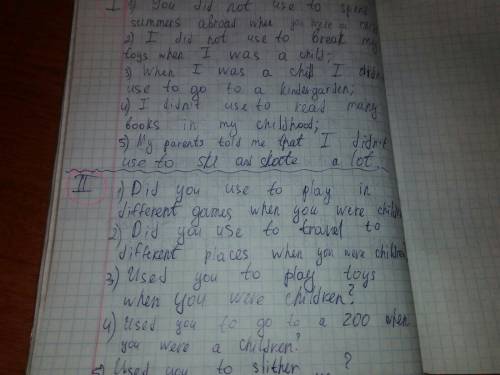 I 1) You did not use to spend
summers abroad when you were a
2) I did not use to break my
toys when I was a child;
3) When I was a child I didn't
use to go to a kindergarden;
4) I didn't use to read many
books in my childhood;
5) My parents told me that I didn't
use to ski and skate a lot.
II 1) Did you use to play in
different games when you were children
2) Did you use to travel to
different places when you were children
3) Used you to play toys
when you were children?
4) Used you to go to a ZOO when
you were a children?
5) Used you to slither ... ?